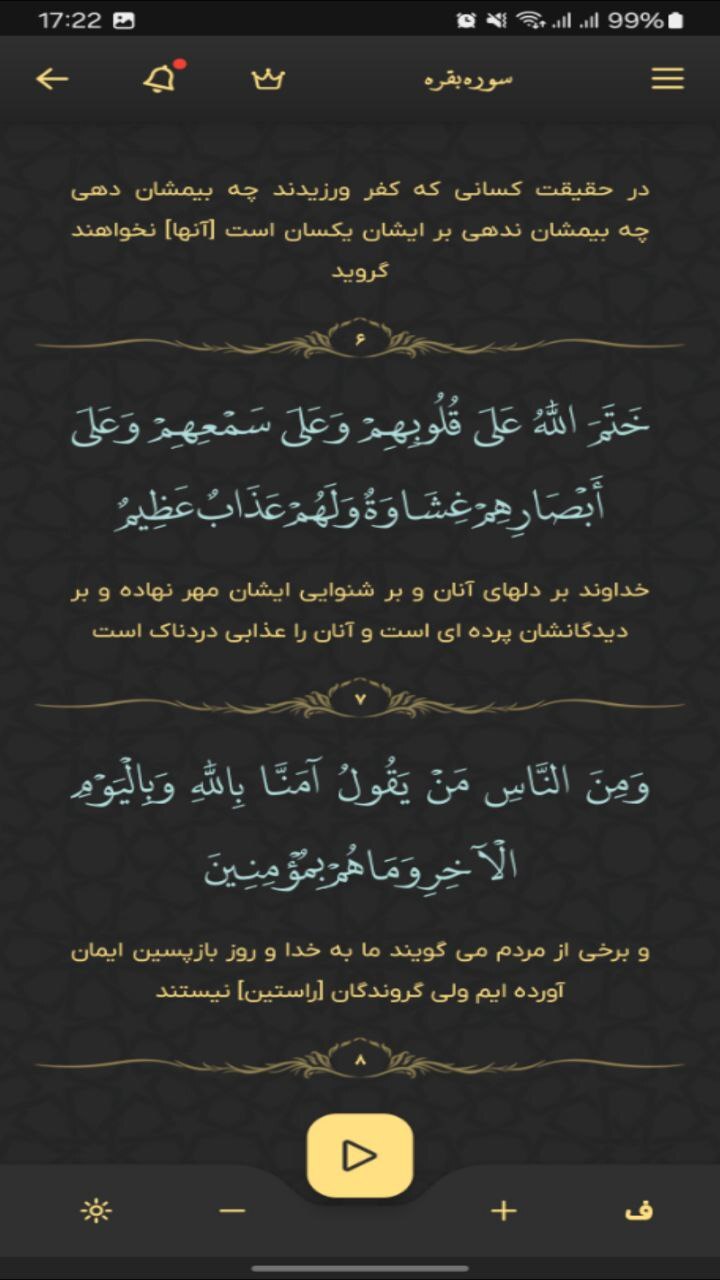 17:22 99%
سوره‌بقره
در حقیقت کسانی که کفر ورزیدند چه بیمشان دهی
چه بیمشان ندهی بر ایشان یکسان است [آنها] نخواهند
گروید
۶
خَتَمَ اللَّهُ عَلَىٰ قُلُوبِهِمْ وَعَلَىٰ سَمْعِهِمْ وَعَلَىٰ
أَبْصَارِهِمْ غِشَاوَةٌ وَلَهُمْ عَذَابٌ عَظِيمٌ
خداوند بر دلهای آنان و بر شنوایی ایشان مهر نهاده و بر
دیدگانشان پرده ای است و آنان را عذابی دردناک است
۷
وَمِنَ النَّاسِ مَنْ يَقُولُ آمَنَّا بِاللَّهِ وَبِالْيَوْمِ
الْآخِرِ وَمَا هُمْ بِمُؤْمِنِينَ
و برخی از مردم می گویند ما به خدا و روز بازپسین ایمان
آورده ایم ولی گروندگان [راستین] نیستند
۸
ف